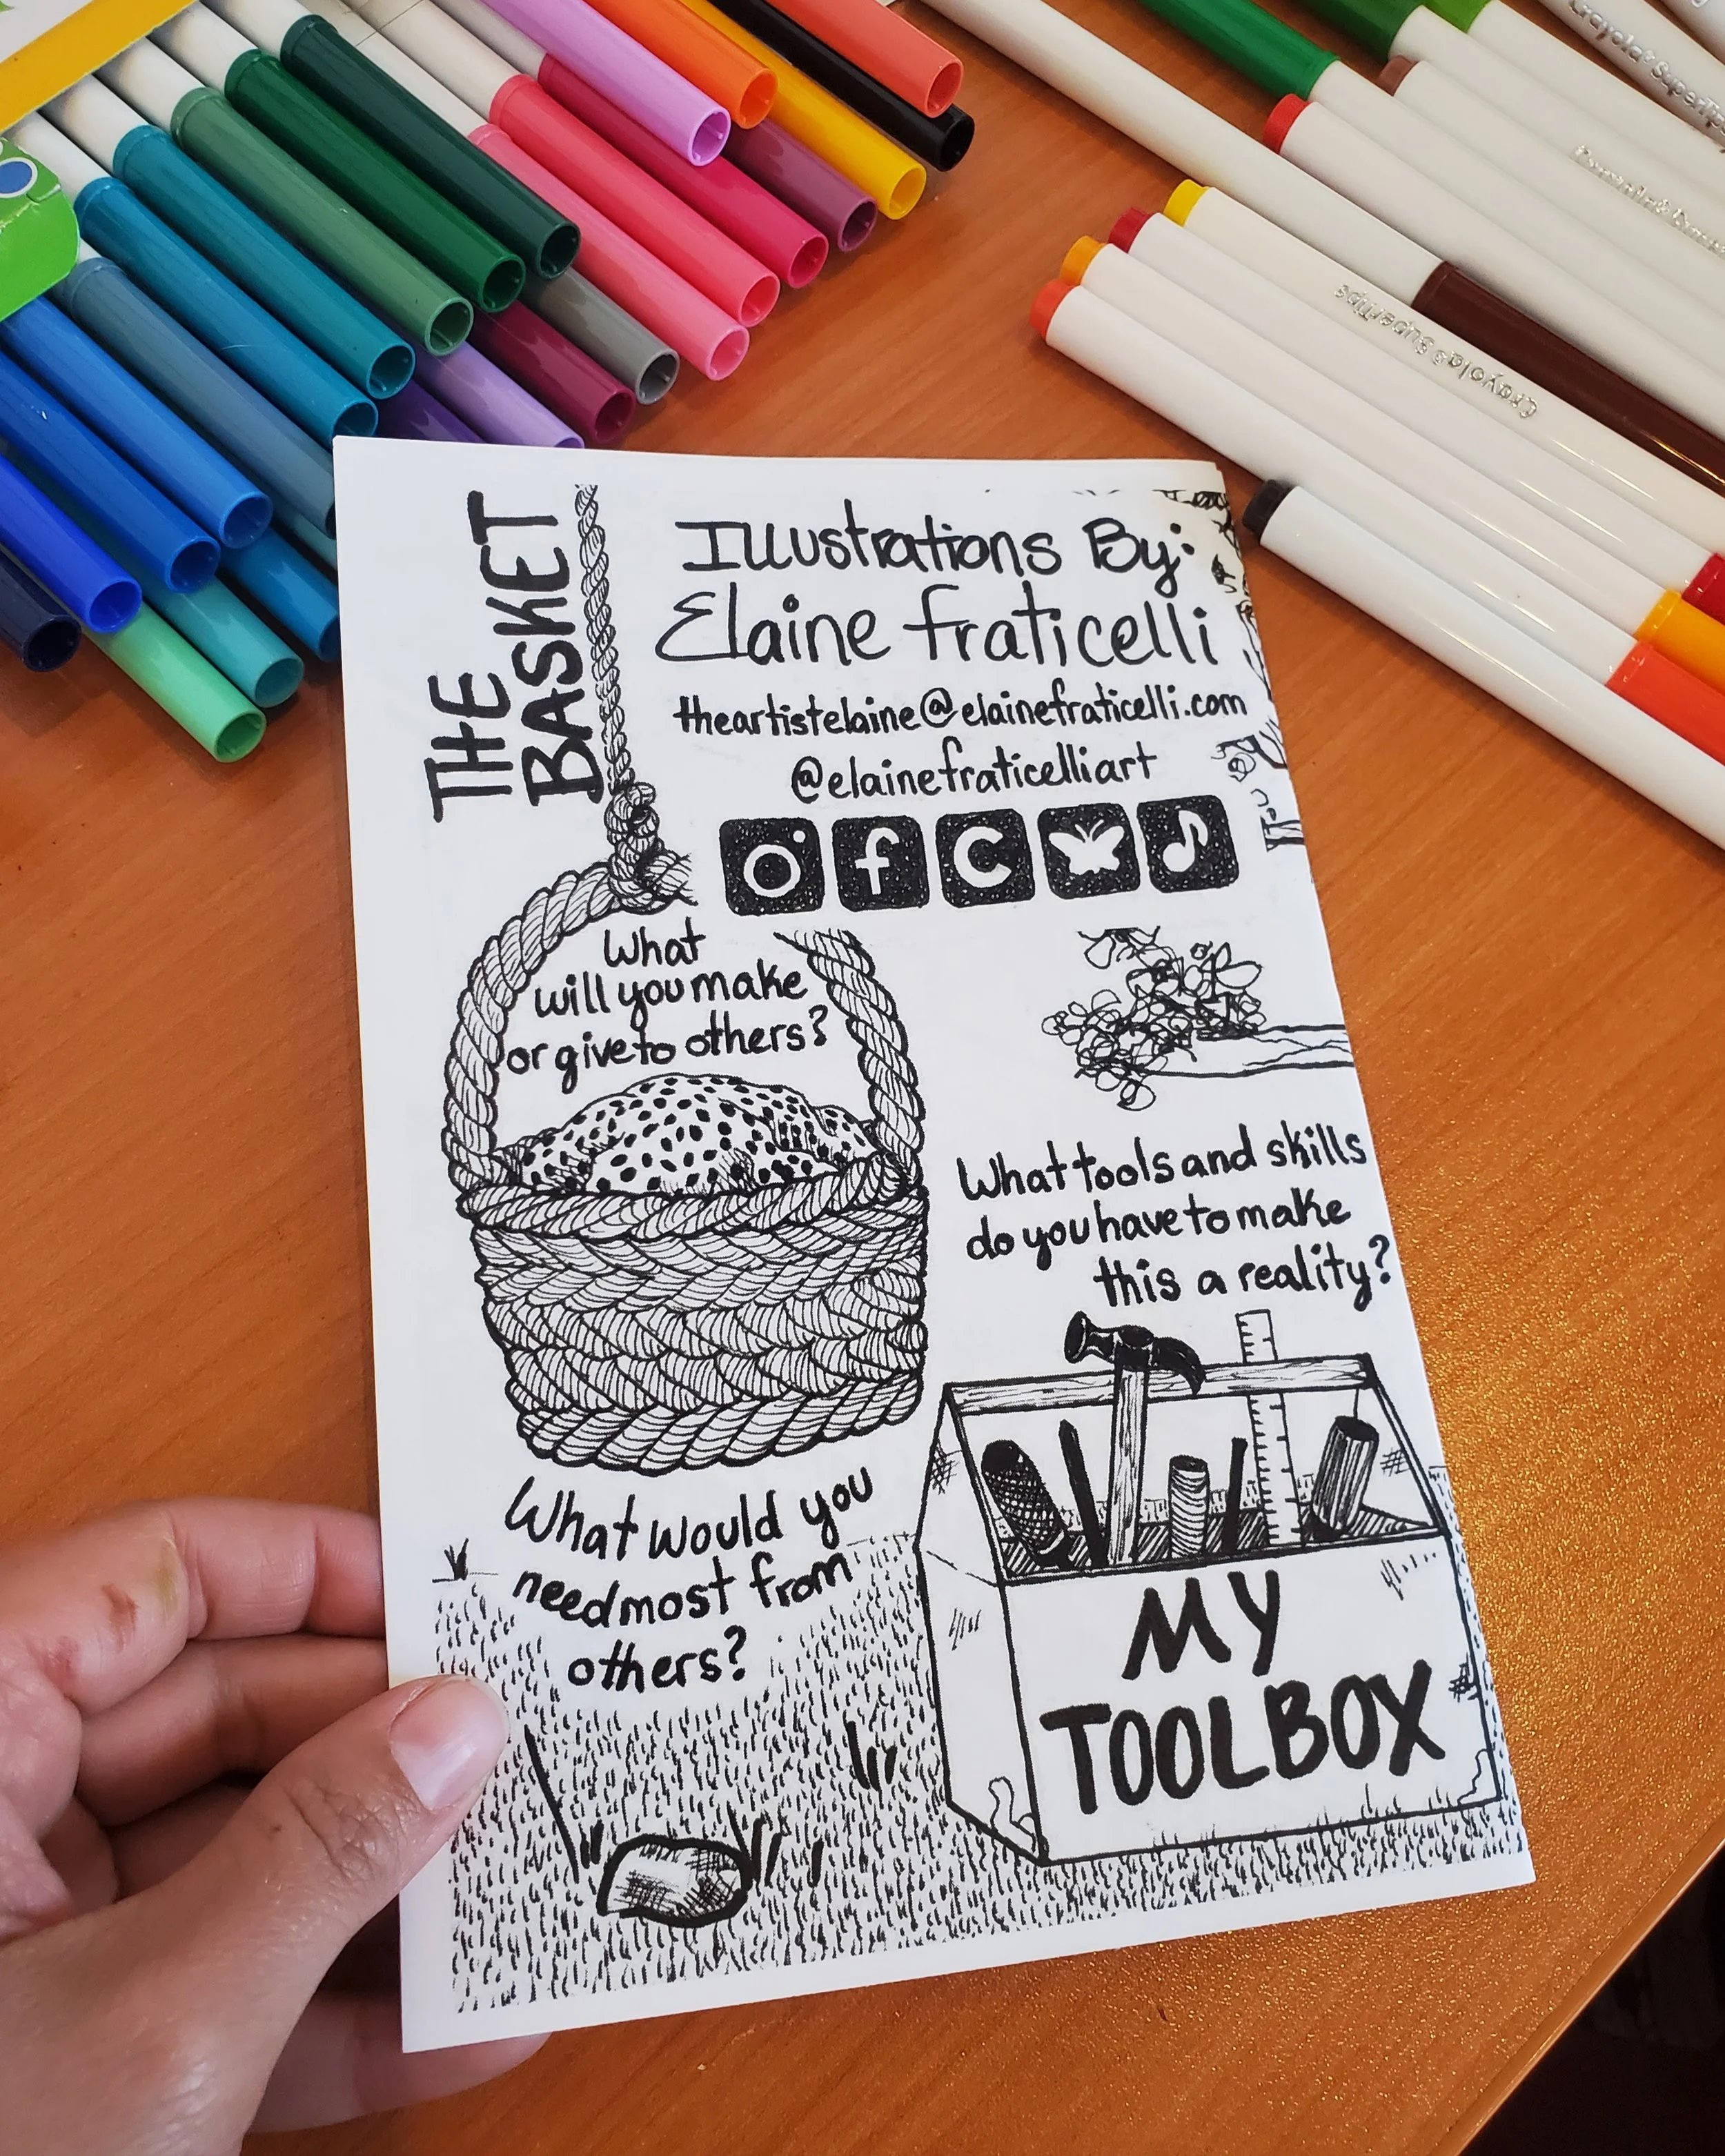 THE
BASKET
Illustrations By:
Elaine Fraticelli
theartistelaine@elainefraticelli.com
@elainefraticelliart
What
will you make
or give to others?
What tools and skills
do you have to make
this a reality?
What would you
need most from
others?
MY
TOOLBOX
Crayola® SuperTips
Crayola® SuperTips